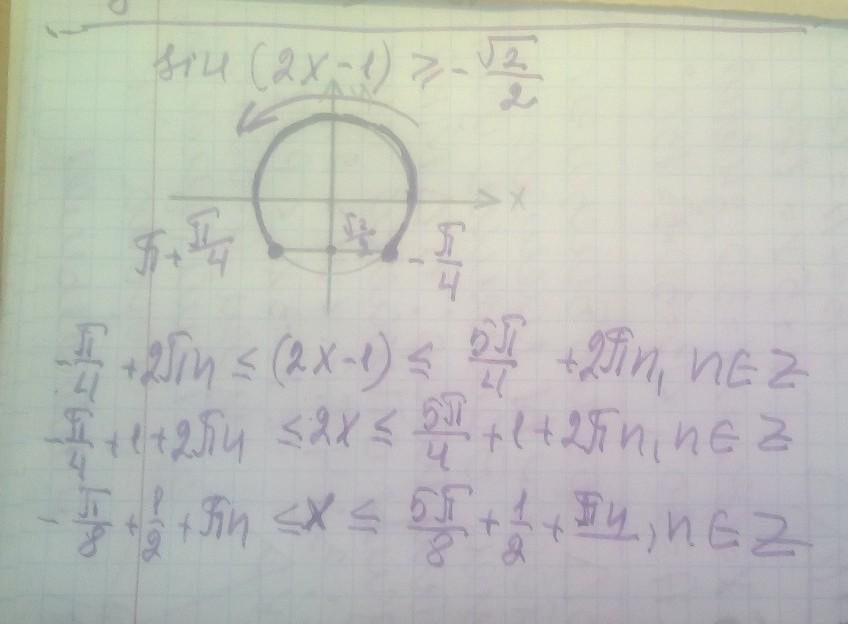 sin (2x-1) ≥ - √2/2
x
π + π/4
√2/2
- π/4
-π/4 + 2πn ≤ (2x-1) ≤ 5π/4 + 2πn, n ∈ Z
-π/4 + 1 + 2πn ≤ 2x ≤ 5π/4 + 1 + 2πn, n ∈ Z
-π/8 + 1/2 + πn ≤ x ≤ 5π/8 + 1/2 + πn, n ∈ Z